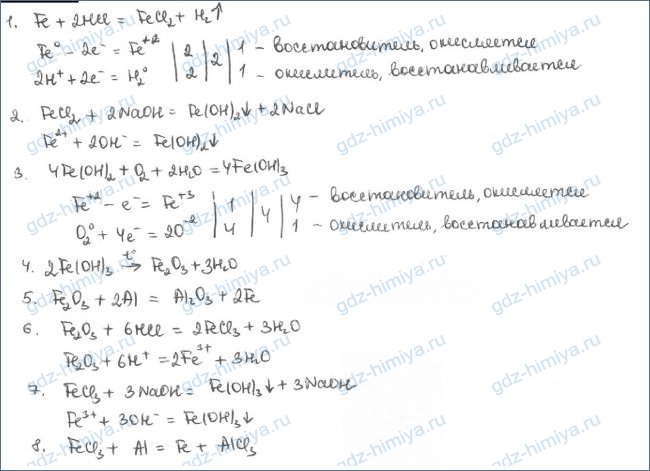 1. Fe + 2HCl = FeCl₂ + H₂↑
Fe⁰ - 2e⁻ = Fe⁺² | 2 | 2 | 1 – восстановитель, окисляется
2H⁺ + 2e⁻ = H₂⁰ | 2 | | 1 – окислитель, восстанавливается
2. FeCl₂ + 2NaOH = Fe(OH)₂↓ + 2NaCl
Fe²⁺ + 2OH⁻ = Fe(OH)₂↓
3. 4Fe(OH)₂ + O₂ + 2H₂O = 4Fe(OH)₃
Fe⁺² - e⁻ = Fe⁺³ | 1 | 4 | 4 – восстановитель, окисляется
O₂⁰ + 4e⁻ = 2O⁻² | 4 | | 1 – окислитель, восстанавливается
4. 2Fe(OH)₃ →t° Fe₂O₃ + 3H₂O
5. Fe₂O₃ + 2Al = Al₂O₃ + 2Fe
6. Fe₂O₃ + 6HCl = 2FeCl₃ + 3H₂O
Fe₂O₃ + 6H⁺ = 2Fe³⁺ + 3H₂O
7. FeCl₃ + 3NaOH = Fe(OH)₃↓ + 3NaOH
Fe³⁺ + 3OH⁻ = Fe(OH)₃↓
8. FeCl₃ + Al = Fe + AlCl₃
gdz-himiya.ru